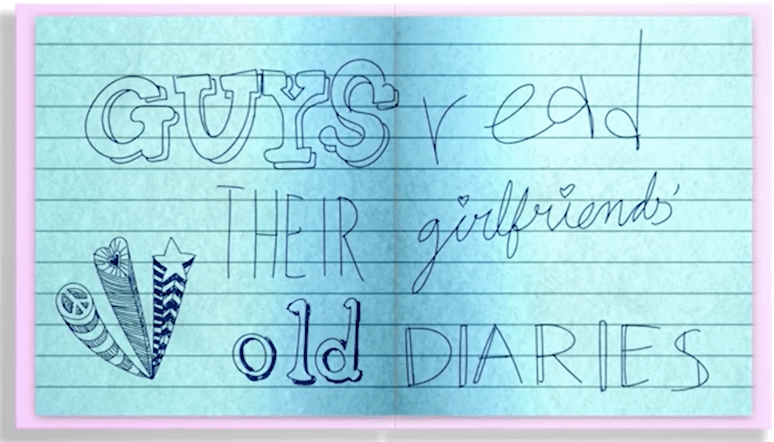 GUYS read
THEIR girlfriends'
old DIARIES